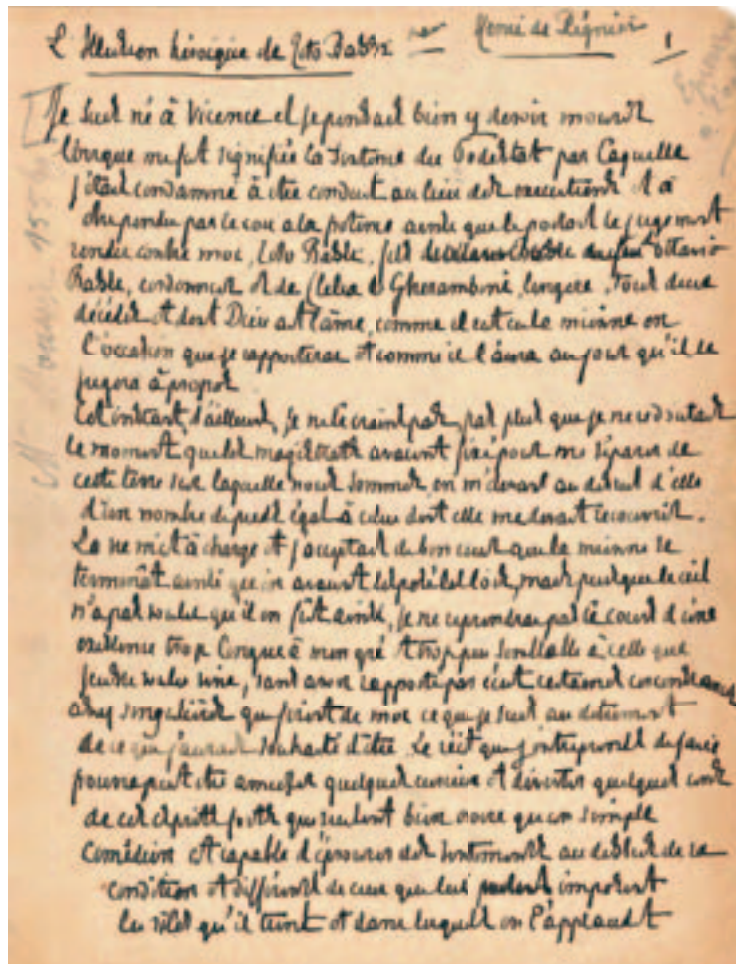 L'Illusion héroïque de Tito Bassi par Henri de Régnier 1
Je suis né à Vicence et je pensais bien y devoir mourir
lorsque me fut signifiée la sentence du Podestat par laquelle
j'étais condamné à être conduit au lieu des exécutions et à
être pendu par le cou à la potence ainsi que le portait le jugement
rendu contre moi, Tito Bassi, fils de Ottavio
Bassi, cordonnier et de Clelia Gherambini, lingère. Tous deux
décédés et dont Dieu ait l'âme, comme il eut eu la mienne en
l'occasion que je rapporterai et comme il l'aura au jour qu'il le
jugera à propos
Cet instant, d'ailleurs, je ne le crains pas, pas plus que je ne redoutais
le moment que les magistrats avaient fixé pour me séparer de
cette terre sur laquelle nous sommes, en m'élevant au dessus d'elle
d'un nombre de pieds égal à celui dont elle me devrait recouvrir.
La vie m'est à charge et j'acceptais de bon cœur que la mienne se
terminât ainsi qu'en avaient disposé les lois, mais puisque le ciel
n'a pas voulu qu'il en fût ainsi, je ne reprendrai pas le cours d'une
existence trop longue à mon gré et trop peu semblable à celle que
j'eusse voulu vivre, sans avoir rapporté par écrit certaines circonstances
assez singulières qui firent de moi ce que je suis au détriment
de ce que j'aurais souhaité d'être. Le récit que j'entreprends de faire
pourra peut être amuser quelques curieux et divertir quelques uns
de ces esprits forts qui veulent bien croire qu'un simple
comédien est capable d'éprouver des sentiments au dessus de sa
condition et différents de ceux que lui imposent
les rôles qu'il tient et dans lesquels on l'applaudit